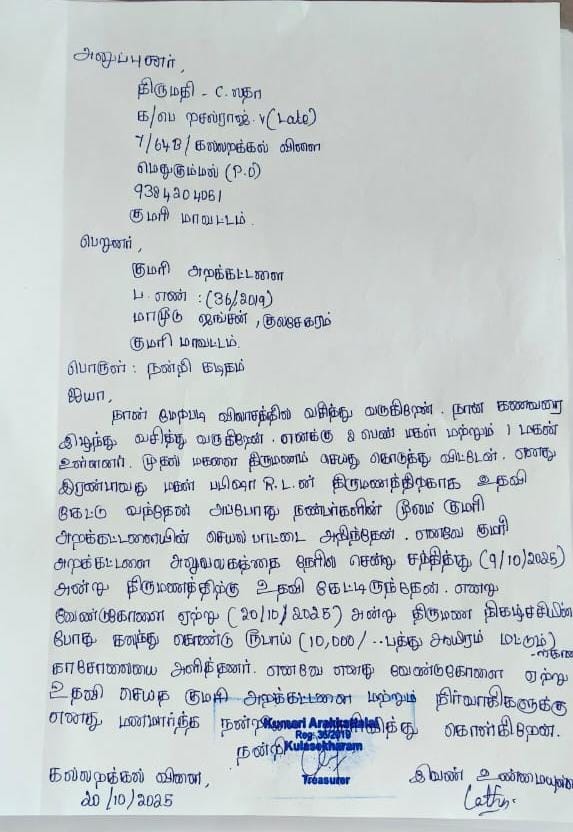 அனுப்புனர்,
திருமதி - C. லதா
க/பெ றசல்ராஜ். V (Late)
7/64B/ கல்லறக்கல் விளை
மெதுகும்மல் (P.O)
9384204061
குமரி மாவட்டம்.
பெறுனர்,
குமரி அறக்கட்டளை
ப. எண் : (36/2019)
மாமூடு ஜங்சன், குலசேகரம்
குமரி மாவட்டம்.
பொருள் : நன்றி கடிதம்
ஐயா,
நான் மேற்படி விலாசத்தில் வசித்து வருகிறேன். நான் கணவரை
இழந்து வசித்து வருகிறேன். எனக்கு 2 பெண் மகள் மற்றும் 1 மகன்
உள்ளனர். முதல் மகளை திருமணம் செய்து கொடுத்து விட்டேன். எனது
இரண்டாவது மகள் R.L.ன் திருமணத்திற்காக உதவி
கேட்டு வந்தேன் அப்போது நண்பர்களின் மூலம் குமரி
அறக்கட்டளையின் செயல் பாட்டை அறிந்தேன். எனவே குமரி
அறக்கட்டளை அலுவலகத்தை நேரில் சென்று சந்தித்து (9/10/2025)
அன்று திருமணத்திற்கு உதவி கேட்டிருந்தேன். எனது
வேண்டுகோளை ஏற்று (20/10/2025) அன்று திருமண நிகழ்ச்சியின்
போது கலந்து கொண்டு ரூபாய் (10,000/-. பத்து ஆயிரம் மட்டும்)
காசோலையை அளித்தனர். எனவே எனது வேண்டுகோளை ஏற்று
உதவி செய்த குமரி அறக்கட்டளை மற்றும் நிர்வாகிகளுக்கு
எனது மனமார்ந்த கொள்கிறேன்.
நன்றி
Kumari Arakkattalai
Reg: 36/2019
Kulasekharam
Treasurer
கல்லறக்கல் விளை,
20/10/2025
இவண் உண்மையுள்ள
Latha.